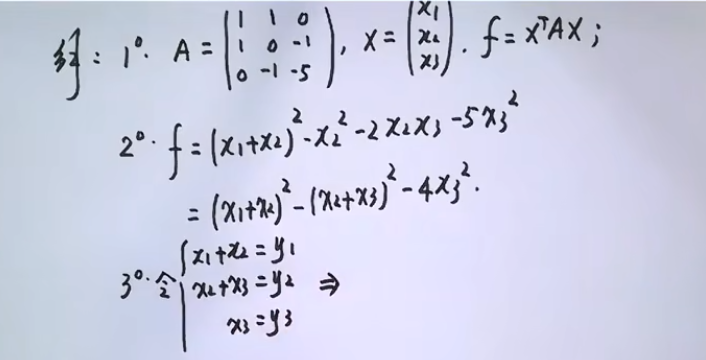 解: 1°. A = (1 1 0; 1 0 -1; 0 -1 -5), X = (x1; x2; x3). f = XᵀAX;
2°. f = (x1+x2)² - x2² - 2x2x3 - 5x3²
= (x1+x2)² - (x2+x3)² - 4x3².
3°. 令 { x1+x2 = y1
x2+x3 = y2 ⇒
x3 = y3